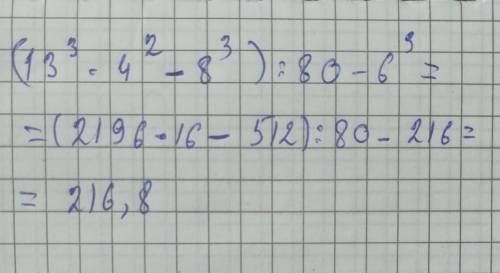 (13³ · 4² - 8³) : 80 - 6³ =
= (2196 · 16 - 512) : 80 - 216 =
= 216,8